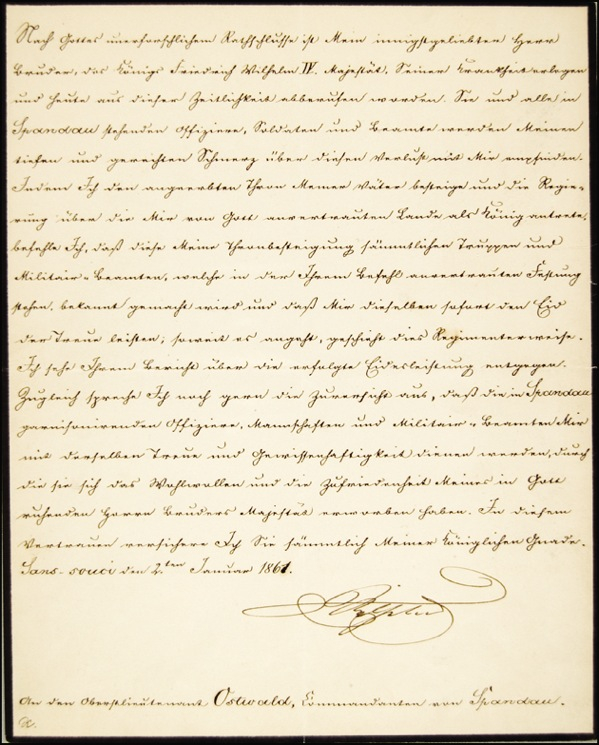 Nach Gottes unerforschlichem Rathschlusse ist Mein innigstgeliebten Herr
Bruder, des Königs Friedrich Wilhelm IV. Majestät, Seiner Krankheit erlegen
und heute aus dieser Zeitlichkeit abberufen worden. Sie und alle in
Spandau stehenden Offiziere, Soldaten und Beamte werden Meinen
tiefen und gerechten Schmerz über diesen Verlust mit Mir empfinden.
Indem Ich den angeerbten Thron Meiner Väter besteige und die Regie-
rung über die Mir von Gott anvertrauten Lande als König antrete,
befehle Ich, daß diese Meine Thronbesteigung sämmtlichen Truppen und
Militair-Beamten, welche in der Ihrem Befehl anvertrauten Festung
stehen, bekannt gemacht wird und daß Mir dieselben sofort den Eid
der Treue leisten; soweit es angeht, geschieht dies Regimenterweise.
Ich sehe Ihrem Bericht über die erfolgte Eidesleistung entgegen.
Zugleich spreche Ich noch gern die Zuversicht aus, daß die in Spandau
garnisonirenden Offiziere, Mannschaften und Militair-Beamten Mir
mit derselben Treue und Gewissenhaftigkeit dienen werden, durch
die sie sich das Wohlwollen und die Zufriedenheit Meines in Gott
ruhenden Herrn Bruders Majestät erworben haben. In diesem
Vertrauen versichere Ich Sie sämmtlich Meiner Königlichen Gnade.
Sans-souci den 2.ten Januar 1861.
Wilhelm
An den Oberstlieutenant Ostwald, Commandanten von Spandau.